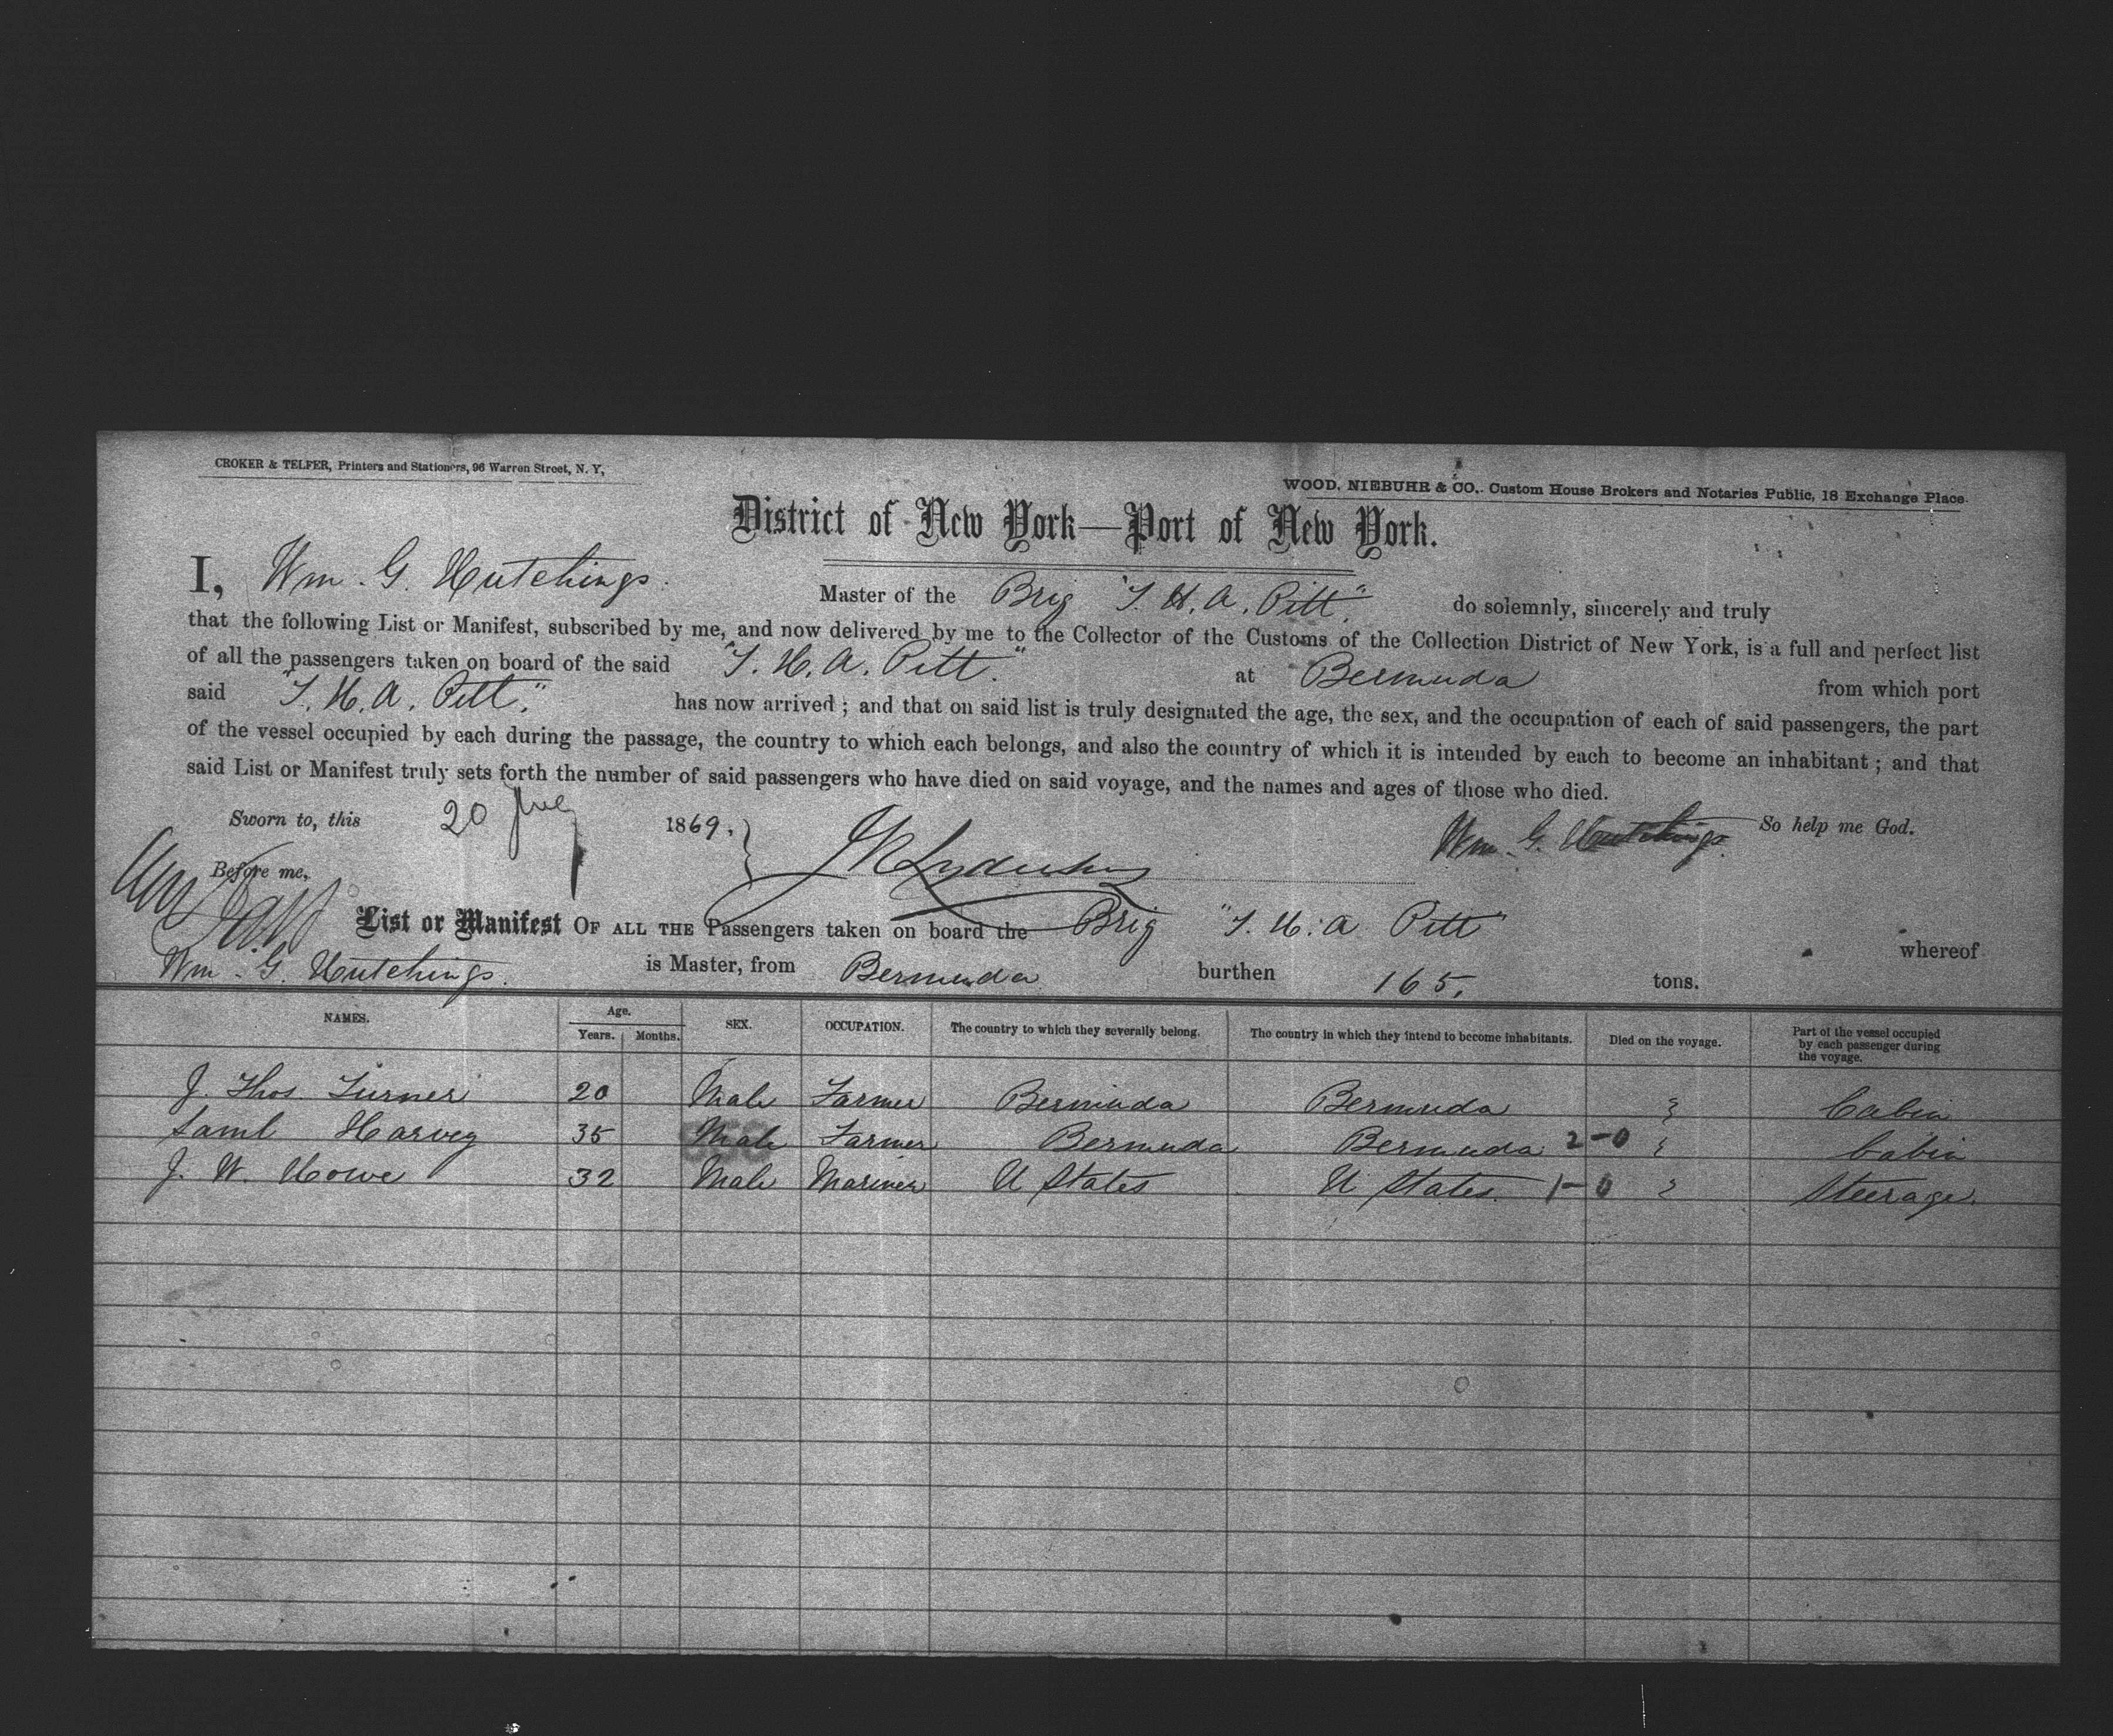 CROKER & TELFER, Printers and Stationers, 96 Warren Street, N. Y,
WOOD, NIEBUHR & CO,. Custom House Brokers and Notaries Public, 18 Exchange Place.
District of New York—Port of New York.
I, Wm. G. Hutchings. Master of the Brig "T. H. A. Pitt." do solemnly, sincerely and truly
that the following List or Manifest, subscribed by me, and now delivered by me to the Collector of the Customs of the Collection District of New York, is a full and perfect list
of all the passengers taken on board of the said "T. H. A. Pitt." at Bermuda from which port
said "T. H. A. Pitt." has now arrived ; and that on said list is truly designated the age, the sex, and the occupation of each of said passengers, the part
of the vessel occupied by each during the passage, the country to which each belongs, and also the country of which it is intended by each to become an inhabitant ; and that
said List or Manifest truly sets forth the number of said passengers who have died on said voyage, and the names and ages of those who died.
Sworn to, this 20 July 1869. Wm. G. Hutchings. So help me God.
Before me,
List or Manifest OF ALL THE Passengers taken on board the Brig "T. H. A Pitt" whereof
Wm. G. Hutchings. is Master, from Bermuda burthen 165. tons.
NAMES. Age. Years. Months. SEX. OCCUPATION. The country to which they severally belong. The country in which they intend to become inhabitants. Died on the voyage. Part of the vessel occupied by each passenger during the voyage.
J. Thos. Turner 20 Male Farmer Bermuda Bermuda Cabin
Saml Harvey 35 Male Farmer Bermuda Bermuda 2-0 Cabin
J. W. Howe 32 Male Mariner U States U States. 1-0 Steerage.